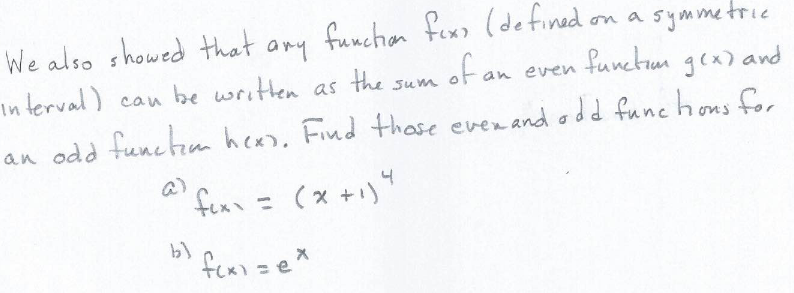 We also showed that any function f(x) (defined on a symmetric
interval) can be written as the sum of an even function g(x) and
an odd function h(x). Find those even and odd functions for
a) f(x) = (x+1)⁴
b) f(x) = eˣ